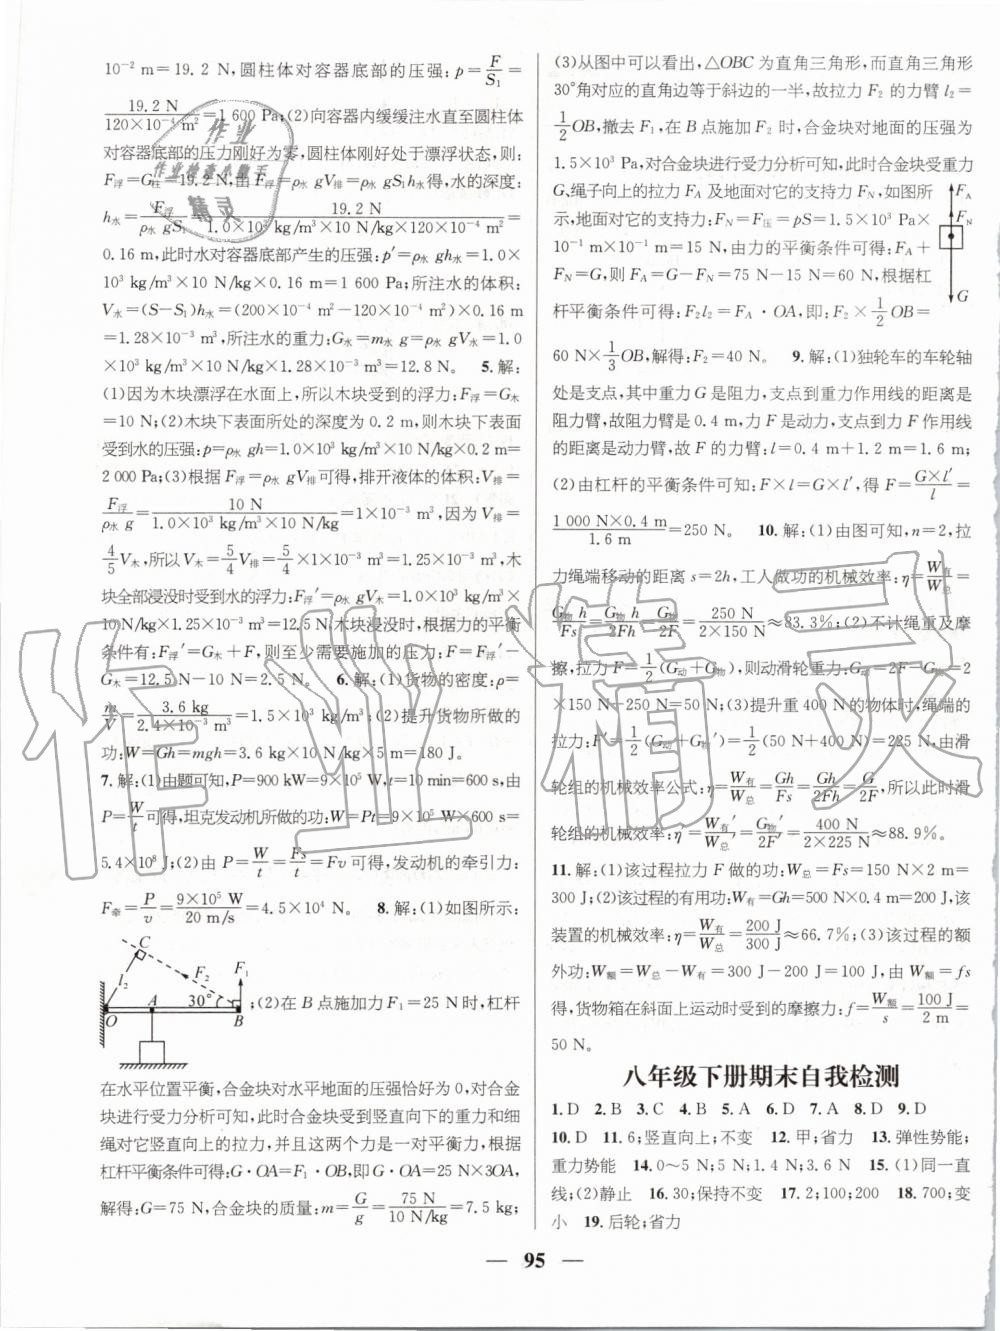 10⁻² m=19.2 N,圆柱体对容器底部的压强:p=F/S₁=
19.2 N/(120×10⁻⁴ m²)=1 600 Pa;(2)向容器内缓缓注水直至圆柱体
对容器底部的压力刚好为零,圆柱体刚好处于漂浮状态,则:
F浮=G柱=19.2N,由F浮=ρ水 gV排=ρ水 gS₁h水得,水的深度:
h水=F浮/(ρ水 gS₁)=19.2 N/(1.0×10³ kg/m³×10 N/kg×120×10⁻⁴ m²)=
0.16 m,此时水对容器底部产生的压强:p′=ρ水 gh水=1.0×
10³ kg/m³×10 N/kg×0.16 m=1 600 Pa;所注水的体积:
V水=(S−S₁)h水=(200×10⁻⁴ m²−120×10⁻⁴ m²)×0.16 m
=1.28×10⁻³ m³,所注水的重力:G水=m水 g=ρ水 gV水=1.0
×10³ kg/m³×10 N/kg×1.28×10⁻³ m³=12.8 N。 5.解:
(1)因为木块漂浮在水面上,所以木块受到的浮力:F浮=G木
=10 N;(2)木块下表面所处的深度为0.2 m,则木块下表面
受到水的压强:p=ρ水 gh=1.0×10³ kg/m³×10 N/kg×0.2 m=
2 000 Pa;(3)根据F浮=ρ水 gV排可得,排开液体的体积:V排=
F浮/(ρ水 g)=10 N/(1.0×10³ kg/m³×10 N/kg)=1×10⁻³ m³,因为V排=
4/5V木,所以V木=5/4V排=5/4×1×10⁻³ m³=1.25×10⁻³ m³,木
块全部浸没时受到水的浮力:F浮′=ρ水 gV木=1.0×10³ kg/m³×10 N/
kg×1.25×10⁻³ m³=12.5 N,木块浸没时,根据力的平衡
条件有:F浮′=G木+F,则至少需要施加的压力:F=F浮′−
G木=12.5 N−10 N=2.5 N。 6.解:(1)货物的密度:ρ=
m/V=3.6 kg/(2.4×10⁻³ m³)=1.5×10³ kg/m³;(2)提升货物所做的
功:W=Gh=mgh=3.6 kg×10 N/kg×5 m=180 J。
7.解:(1)由题可知,P=900 kW=9×10⁵ W,t=10 min=600 s,由
P=W/t可得,坦克发动机所做的功:W=Pt=9×10⁵ W×600 s=
5.4×10⁸ J;(2)由P=W/t=Fs/t=Fv可得,发动机的牵引力:
F牵=P/v=9×10⁵ W/20 m/s=4.5×10⁴ N。 8.解:(1)如图所示:
C
l₂
F₂
F₁
A
30°
O
B
;(2)在B点施加力F₁=25 N时,杠杆
在水平位置平衡,合金块对水平地面的压强恰好为0,对合金
块进行受力分析可知,此时合金块受到竖直向下的重力和细
绳对它竖直向上的拉力,并且这两个力是一对平衡力,根据
杠杆平衡条件可得:G·OA=F₁·OB,即G·OA=25 N×3OA,
解得:G=75 N,合金块的质量:m=G/g=75 N/10 N/kg=7.5 kg;
(3)从图中可以看出,△OBC为直角三角形,而直角三角形
30°角对应的直角边等于斜边的一半,故拉力F₂的力臂l₂=
1/2OB,撤去F₁,在B点施加F₂时,合金块对地面的压强为
1.5×10³ Pa,对合金块进行受力分析可知,此时合金块受重力
G、绳子向上的拉力F_A及地面对它的支持力F_N,如图所
示,地面对它的支持力:F_N=F压=pS=1.5×10³ Pa×
10⁻¹ m×10⁻¹ m=15 N,由力的平衡条件可得:F_A+
F_N=G,则F_A=G−F_N=75 N−15 N=60 N,根据杠
杆平衡条件可得:F₂l₂=F_A·OA,即:F₂×1/2OB=
F_A
F_N
G
60 N×1/3OB,解得:F₂=40 N。 9.解:(1)独轮车的车轮轴
处是支点,其中重力G是阻力,支点到重力作用线的距离是
阻力臂,故阻力臂是0.4 m,力F是动力,支点到力F作用线
的距离是动力臂,故F的力臂:l=0.4 m+1.2 m=1.6 m;
(2)由杠杆的平衡条件可知:F×l=G×l′,得F=G×l′/l=
1 000 N×0.4 m/1.6 m=250 N。 10.解:(1)由图可知,n=2,拉
力绳端移动的距离s=2h,工人做功的机械效率:η=W有/W总=
G物 h/Fs=G物 h/2Fh=G物/2F=250 N/(2×150 N)≈83.3%;(2)不计绳重及摩
擦,拉力F=1/2(G动+G物),则动滑轮重力:G动=2F−G物=2
×150 N−250 N=50 N;(3)提升重400 N的物体时,绳端的
拉力:F′=1/2(G动+G物′)=1/2(50 N+400 N)=225 N,由滑
轮组的机械效率公式:η=W有/W总=Gh/Fs=Gh/2Fh=G/2F,所以此时滑
轮组的机械效率:η′=W有′/W总′=G物′/2F′=400 N/(2×225 N)≈88.9%。
11.解:(1)该过程拉力F做的功:W总=Fs=150 N×2 m=
300 J;(2)该过程的有用功:W有=Gh=500 N×0.4 m=200 J,该
装置的机械效率:η=W有/W总=200 J/300 J≈66.7%;(3)该过程的额
外功:W额=W总−W有=300 J−200 J=100 J,由W额=fs
得,货物箱在斜面上运动时受到的摩擦力:f=W额/s=100 J/2 m=
50 N。
八年级下册期末自我检测
1.D 2.B 3.C 4.B 5.A 6.D 7.A 8.D 9.D
10.D 11.6;竖直向上;不变 12.甲;省力 13.弹性势能;
重力势能 14.0～5 N;5 N;1.4 N;3.6 N 15.(1)同一直
线;(2)静止 16.30;保持不变 17.2;100;200 18.700;变
小 19.后轮;省力
— 95 —
作业
作业检查小助手
精灵
作业精灵